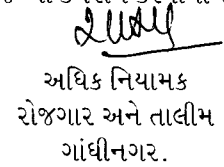 અધિક નિયામક
રોજગાર અને તાલીમ
ગાંધીનગર.